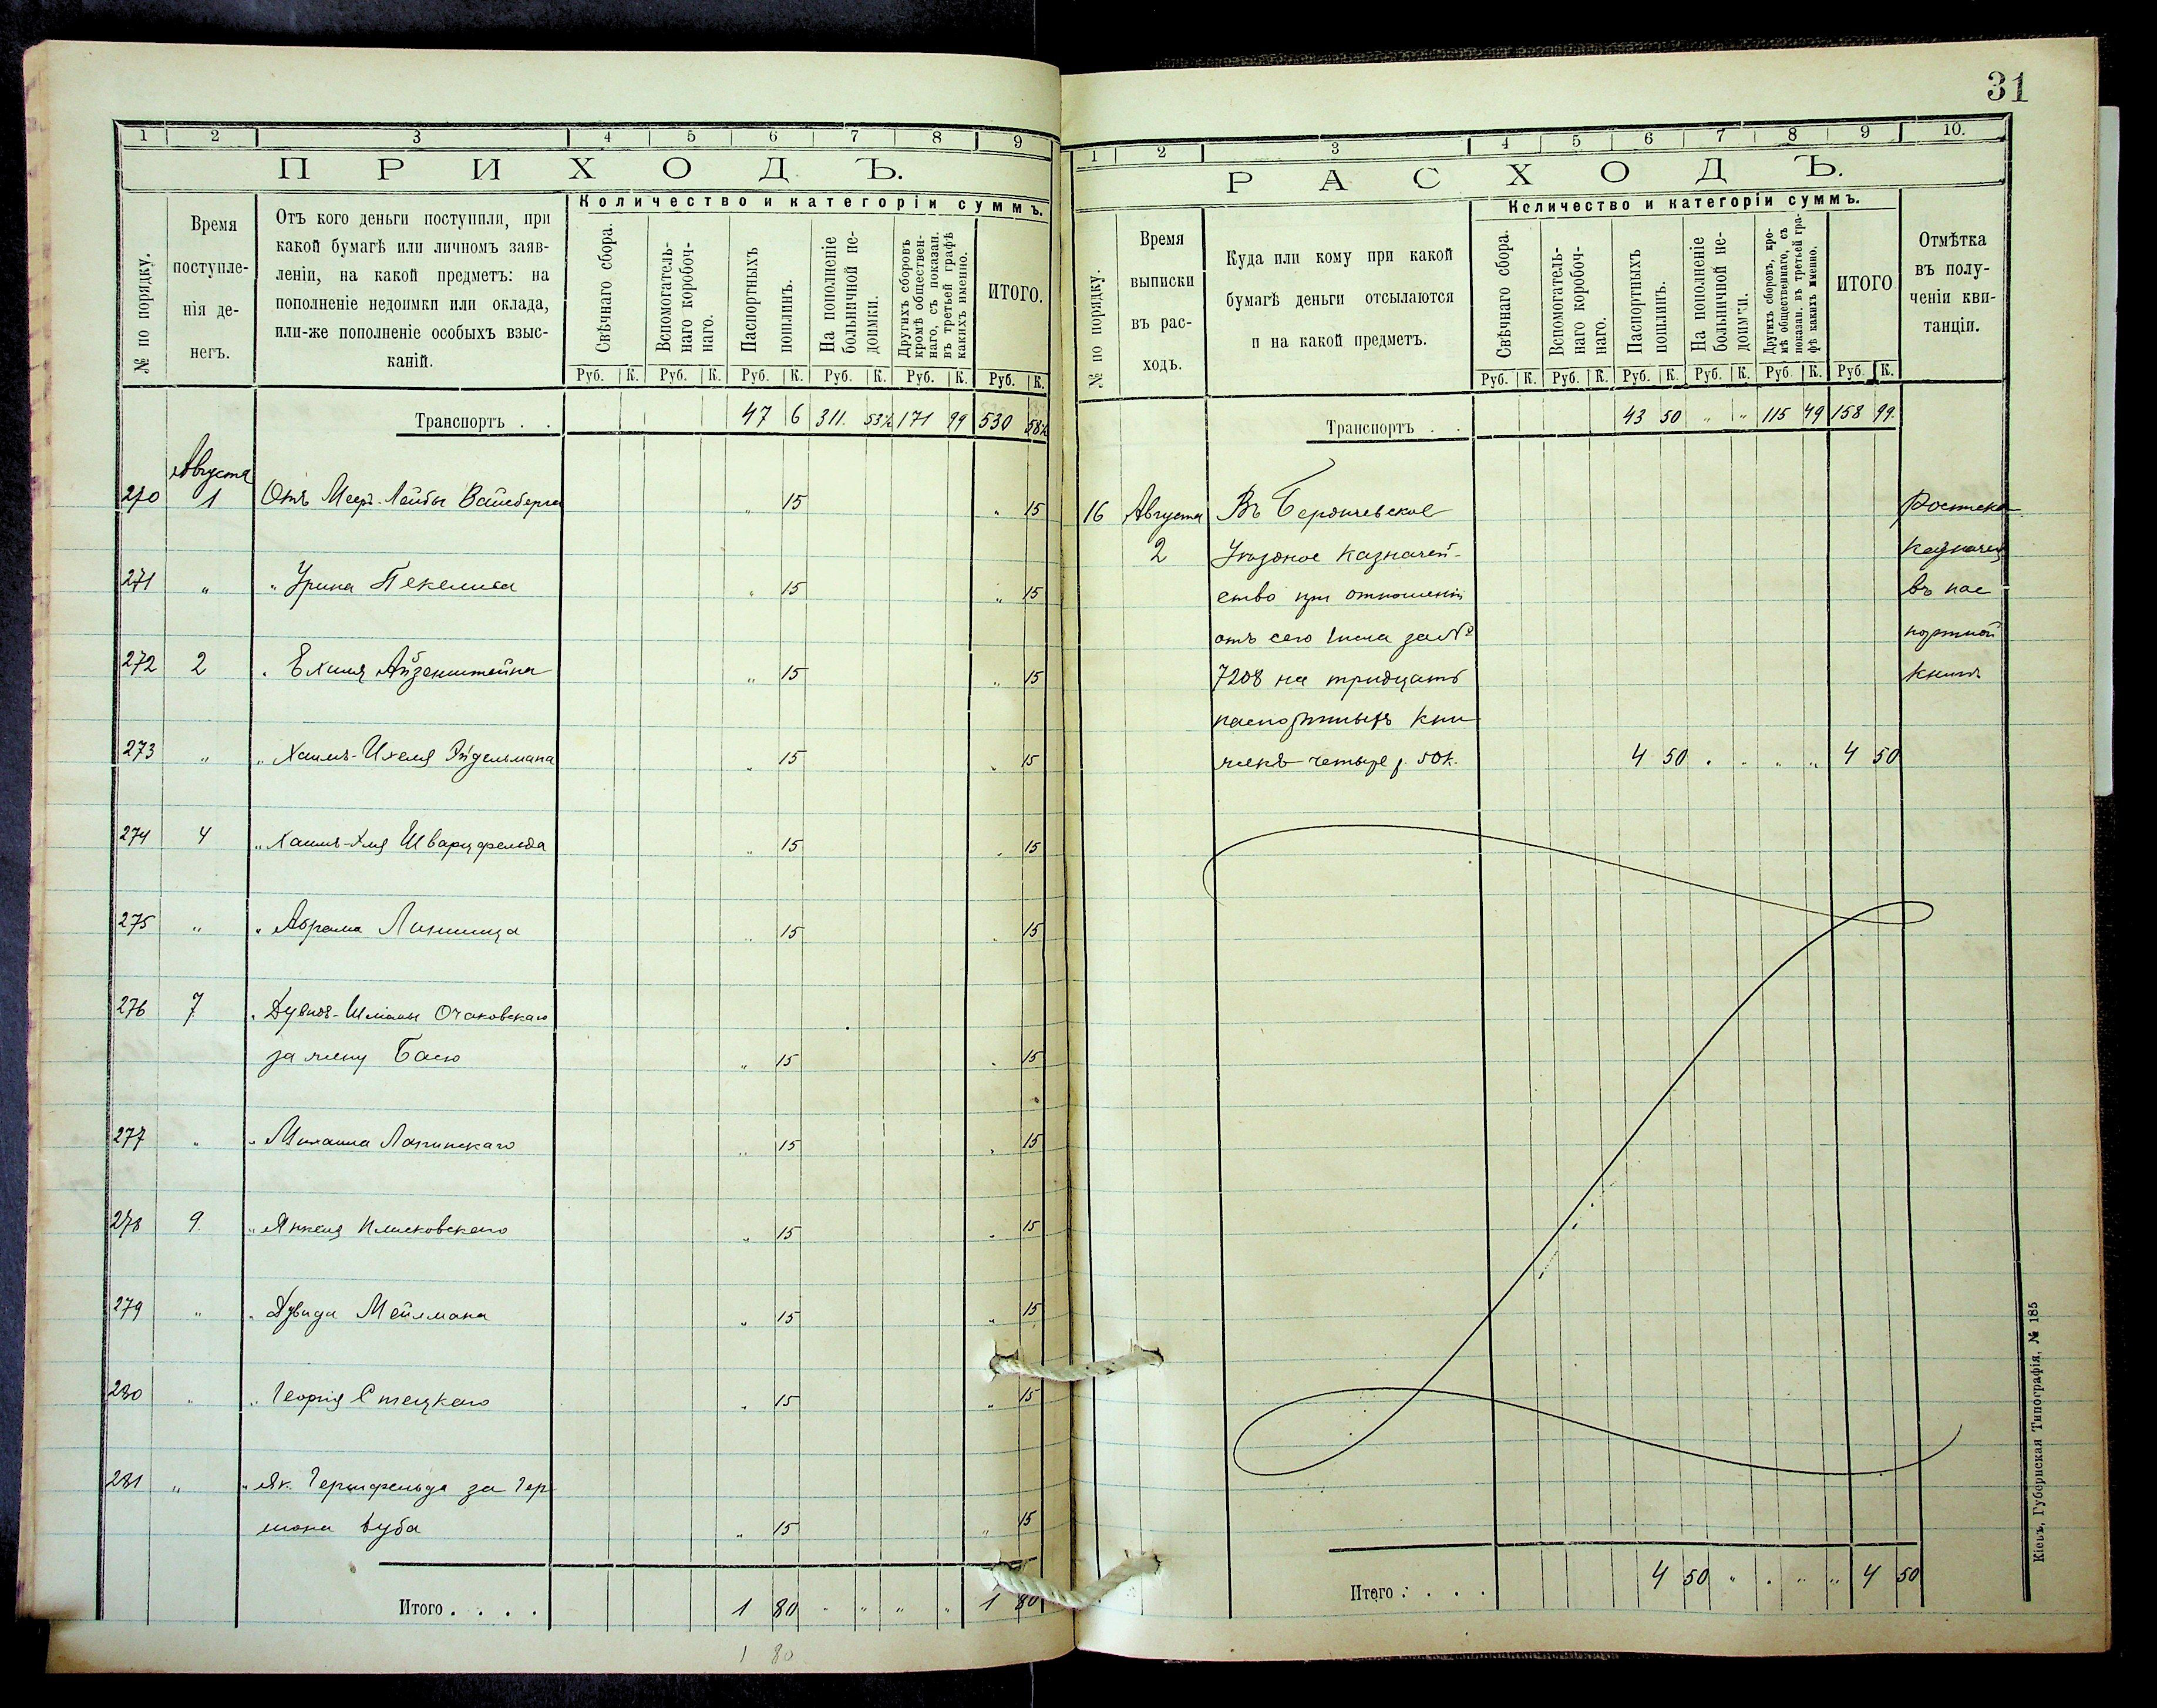 31
1 2 3 4 5 6 7 8 9
ПРИХОДЪ.
№ по порядку.
Время
поступле-
нія де-
негъ.
Отъ кого деньги поступили, при
какой бумагѣ или личномъ заяв-
леніи, на какой предметъ: на
пополненіе недоимки или оклада,
или-же пополненіе особыхъ взыс-
каній.
Количество и категоріи суммъ.
Свѣчнаго сбора.
Вспомогатель-
наго коробоч-
наго.
Паспортныхъ
пошлинъ.
На пополненіе
больничной не-
доимки.
Другихъ сборовъ
кромѣ обществен-
наго, съ показан.
въ третьей графѣ
какихъ именно.
ИТОГО.
Руб. К. Руб. К. Руб. К. Руб. К. Руб. К. Руб. К.
Транспортъ . . 47 6 311 53½ 171 99 530 58½
Августа
270 1 Отъ Меер-Лейбы Вайсберга " 15 " 15
271 " " Урина Пекелиса " 15 " 15
272 2 " Ехиля Айзенштейна " 15 " 15
273 " " Хаимъ-Ихеля Эйдельмана " 15 " 15
274 4 " Шварцфельда " 15 " 15
275 " " Абрама Линшица " 15 " 15
276 7 " Дувидъ- Очаковскаго
за жену Басю " 15 " 15
277 " " Михаила " 15 " 15
278 9. " Янкеля Плисковскаго " 15 " 15
279 " " Дувида Мейлмана " 15 " 15
280 " " Георгія Стецкаго " 15 " 15
281 " " Як. за Гер-
шона " 15 " 15
Итого . . . . 1 80 " " " " 1 80
1 80
1 2 3 4 5 6 7 8 9 10.
РАСХОДЪ.
№ по порядку.
Время
выписки
въ рас-
ходъ.
Куда или кому при какой
бумагѣ деньги отсылаются
и на какой предметъ.
Количество и категоріи суммъ.
Свѣчнаго сбора.
Вспомогатель-
наго коробоч-
наго.
Паспортныхъ
пошлинъ.
На пополненіе
больничной не-
доимки.
Другихъ сборовъ, кро-
мѣ общественнаго, съ
показан. въ третьей гра-
фѣ какихъ именно.
ИТОГО
Отмѣтка
въ полу-
ченіи кви-
танціи.
Руб. К. Руб. К. Руб. К. Руб. К. Руб. К. Руб. К.
Транспортъ . . 43 50 " " 115 49 158 99.
16 Августа Въ Бердичевское
2 Уѣздное Казначей-
ство при отношеніи
отъ сего числа за №
7208 на тридцать
паспортныхъ кни-
жекъ четыре р. 50 к. 4 50 " " " " 4 50
Казначей
въ пас
портной
книгѣ
Итого . . . . 4 50 " " " " 4 50
Кіевъ, Губернская Типографія, № 185